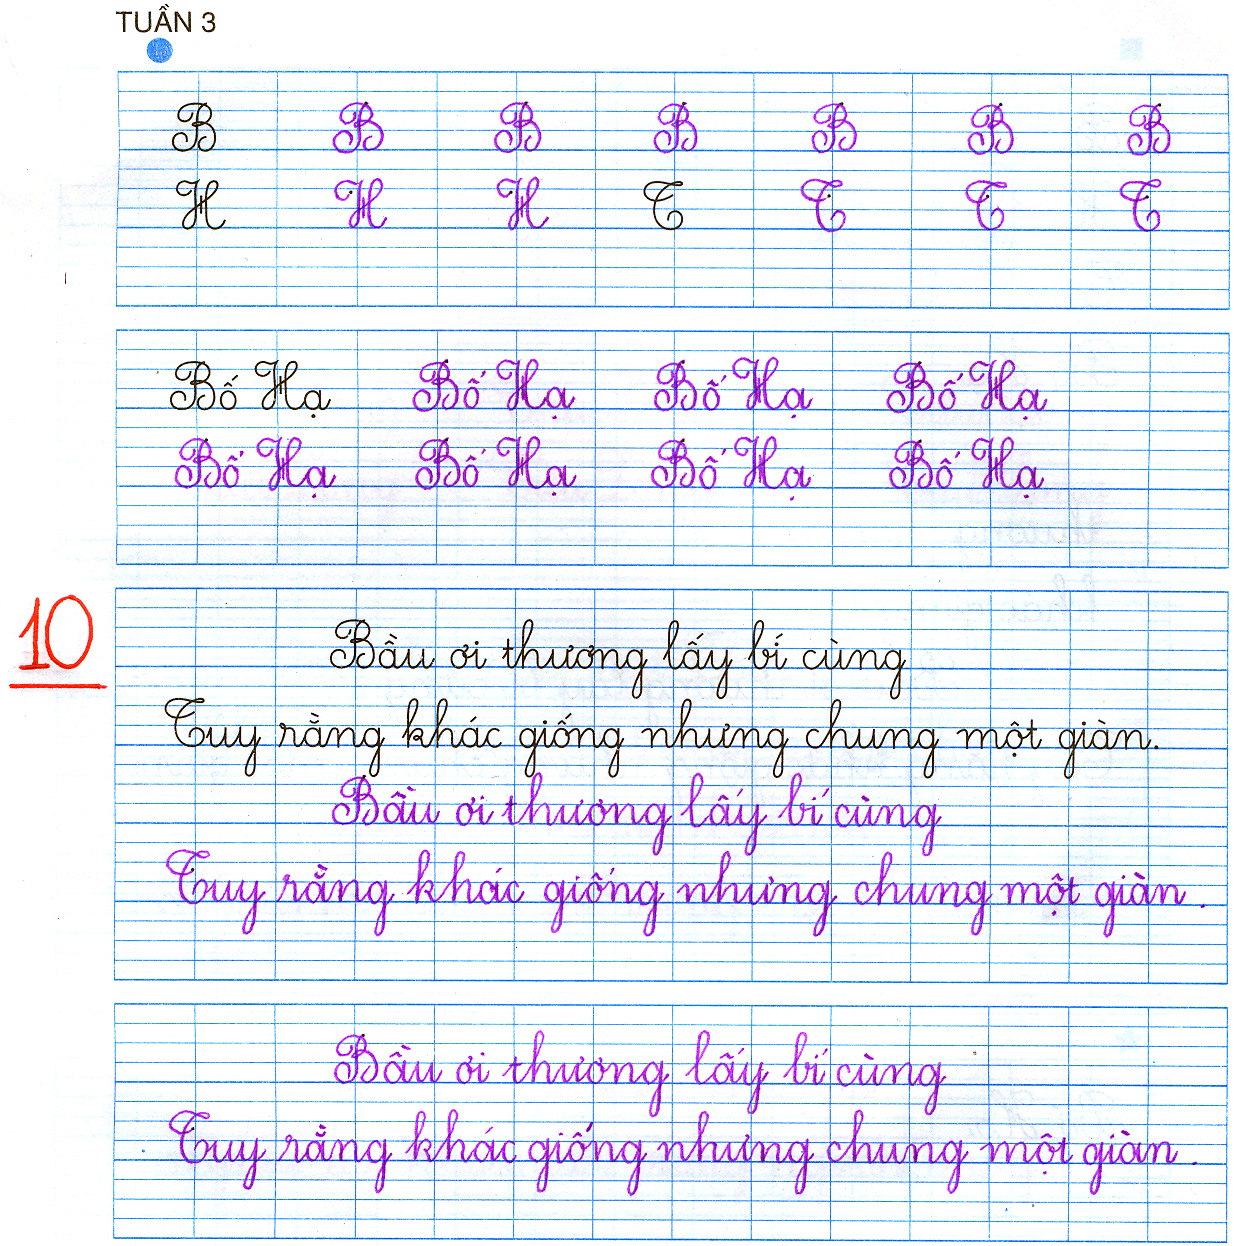 TUẦN 3
B B B B B B B
H H H T T T T
Bố Hạ Bố Hạ Bố Hạ Bố Hạ
Bố Hạ Bố Hạ Bố Hạ Bố Hạ
10
Bầu ơi thương lấy bí cùng
Tuy rằng khác giống nhưng chung một giàn.
Bầu ơi thương lấy bí cùng
Tuy rằng khác giống nhưng chung một giàn.
Bầu ơi thương lấy bí cùng
Tuy rằng khác giống nhưng chung một giàn.